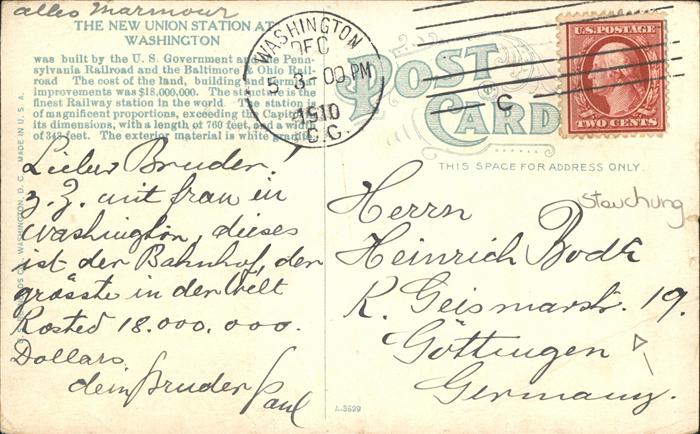 alles Marmour
THE NEW UNION STATION AT
WASHINGTON
was built by the U. S. Government and the Penn-
sylvania Railroad and the Baltimore & Ohio Rail-
road The cost of the land, building and Terminal
improvements was $18,000,000. The structure is the
finest Railway station in the world. The station is
of magnificent proportions, exceeding the Capitol in
its dimensions, with a length of 760 feet, and a width
of 343 feet. The exterior material is white granite
WASHINGTON
DEC
5 3-00 PM
1910
D.C.
C
POST
CARD
THIS SPACE FOR ADDRESS ONLY.
U.S. POSTAGE
TWO CENTS
Stauchung
Lieber Bruder!
z. Z. mit frau in
Washington, dieses
ist der Bahnhof, der
grösste in der Welt
Kosted 18.000.000.
Dollars
dein Bruder Paul
Herrn
Heinrich Bode
K. Geismarstr. 19.
Göttingen
Germany.
WASHINGTON, D. C. MADE IN U. S. A.
A-3529